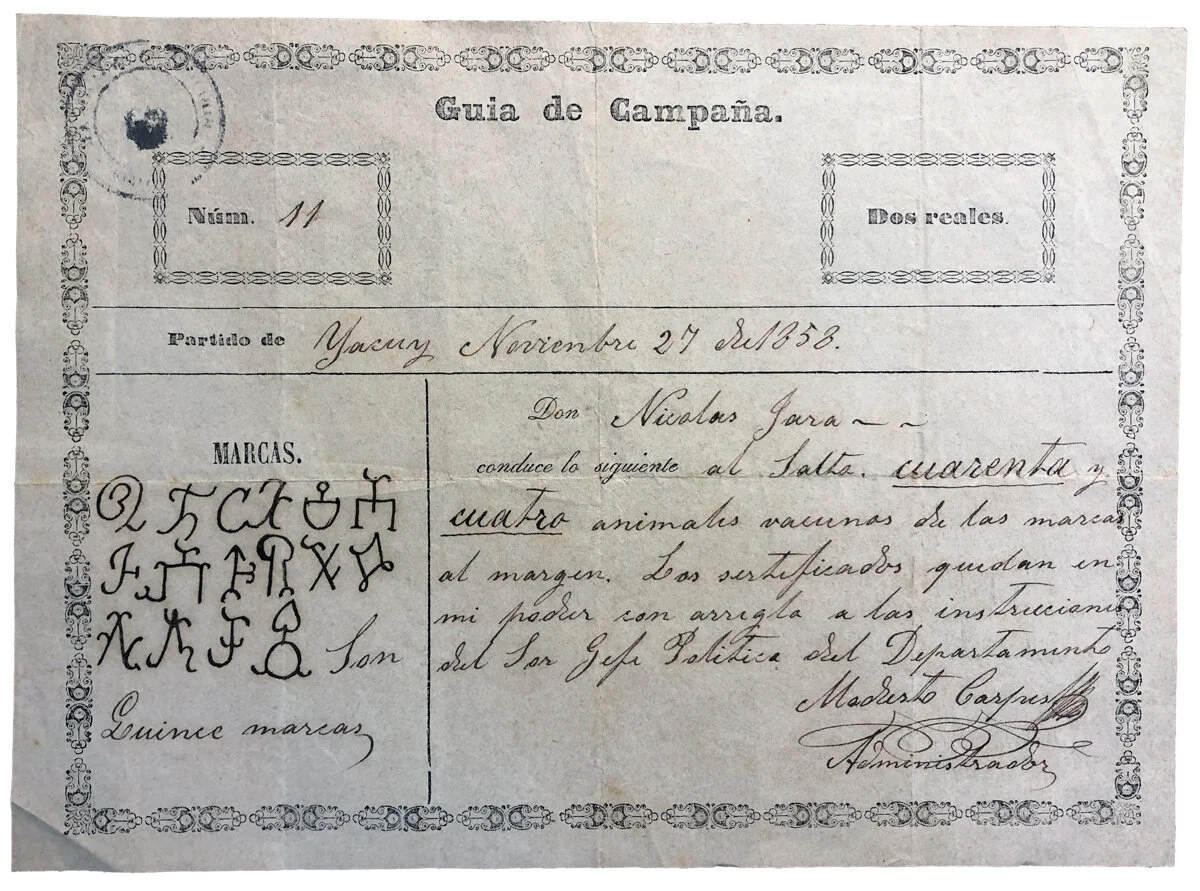 Guia de Campaña.
Núm. 11
Dos reales.
Partido de Yacuy Novienbre 27 de 1858.
Don Nicolas Jara
MARCAS.
conduce lo siguiente al Salto. cuarenta y
cuatro animales vacunos de las marcas
al margen. Los sertificados quedan en
mi poder con arreglo a las instruciones
del Sor Gefe Politico del Departamento
Son
Quince marcas
Modesto
Administrador